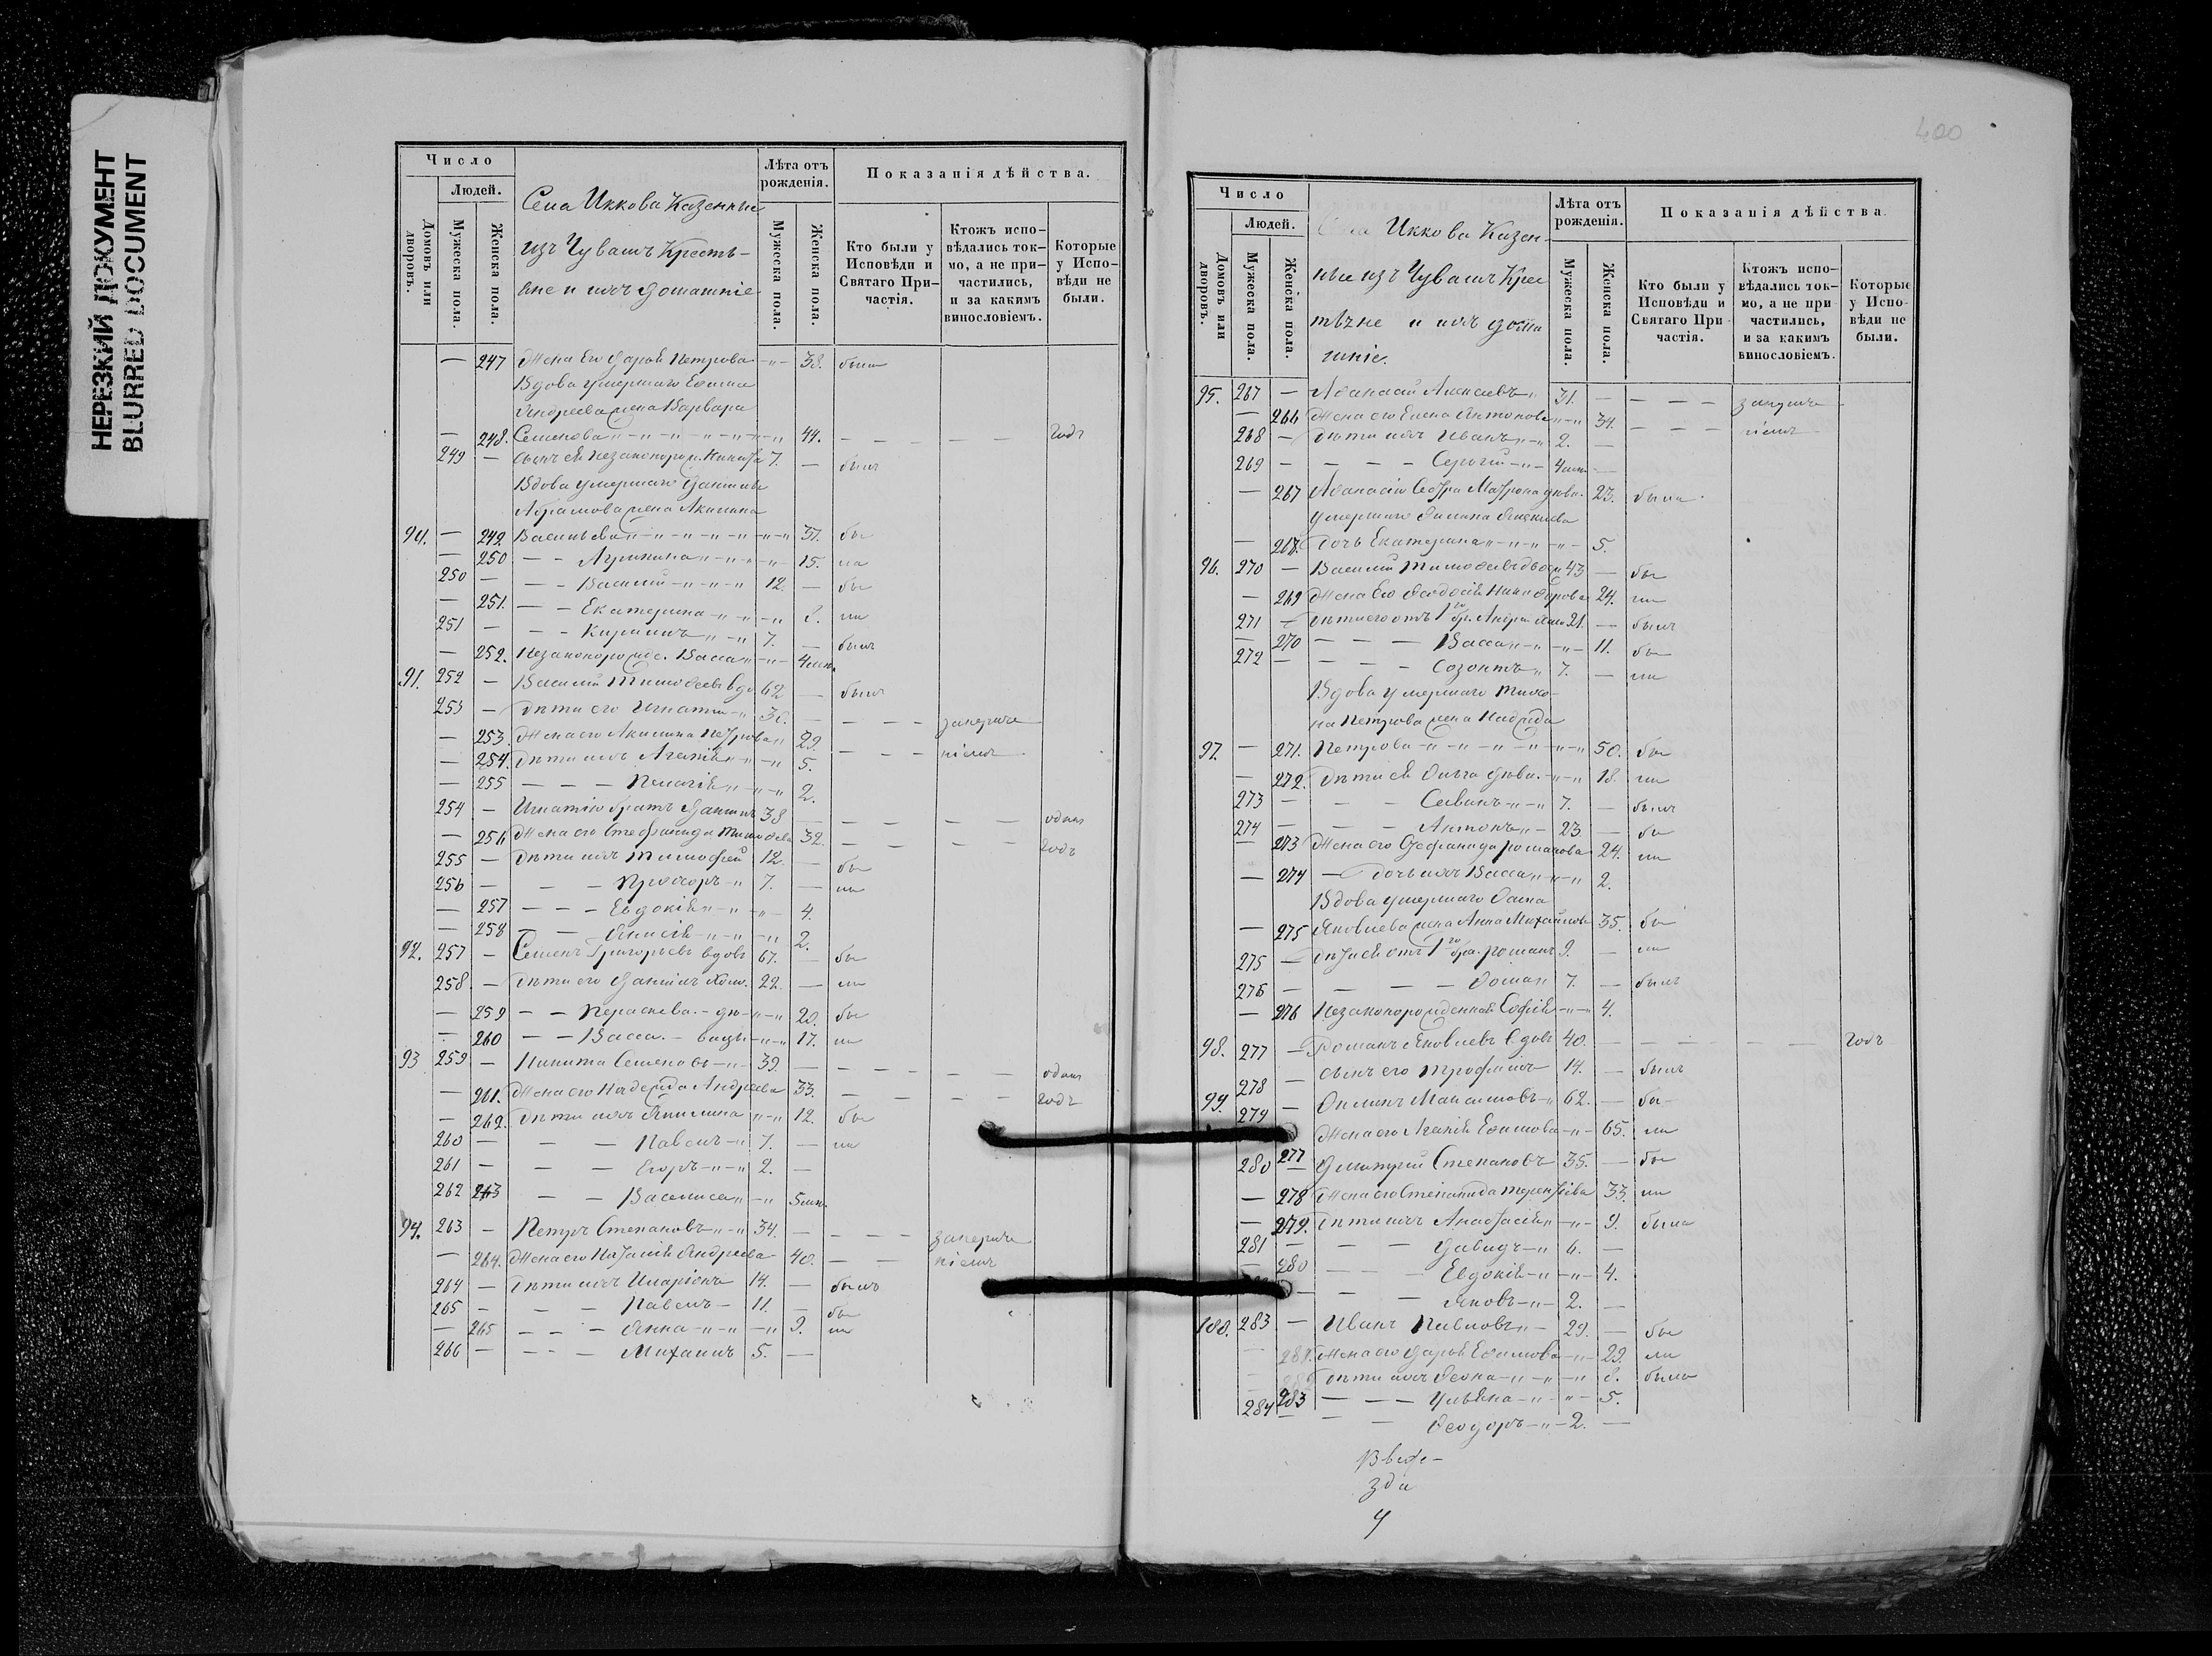 НЕРЕЗКИЙ ДОКУМЕНТ
BLURRED DOCUMENT
Число
Людей.
Домовъ или дворовъ.
Мужеска пола.
Женска пола.
Села Иккова Казенные
изъ Чувашъ Кресть-
яне и ихъ домашніе
Лѣта отъ рожденія.
Мужеска пола.
Женска пола.
Показанія дѣйства.
Кто были у Исповѣди и Святаго При-частія.
Ктожъ испо-вѣдались ток-мо, а не при-частились, и за какимъ винословіемъ.
Которые у Испо-вѣди не были.
— 247 Жена его Дарья Петрова -"- 38. была
Вдова умершаго Ефима
Андреева жена Варвара
— 248. Семенова 44. — — — — — годъ
249 — Сынъ ея незаконорож. Никита 7. — былъ
Вдова умершаго Данила
Абрамова жена Акилина
90. — 249 Васильева 37. бы
— 250 — — Агрипина 15. ла
250 — — — Василій 12. — бы
— 251. — — Екатерина 8. ли
251 — — — Кириллъ 7. — былъ
— 252. Незаконорожд. Васса 4 мес.
91. 252 — Василій Тимофеевъ вдо. 62 — былъ
253 — Дѣти его Игнатій 30. — — — — заперше
— 253. Жена его Акилина Петрова 29. — — — ніемъ
— 254. Дѣти ихъ Агафія 5.
— 255 — — — Пелагія 2.
254 — Игнатію братъ Данилъ 38 — — — — — одинъ
— 256 Жена его Стефанида Тимофеева 32. — — — — годъ
255 — Дѣти ихъ Тимофей 12. — бы
256 — — — Прохоръ 7. — ли
— 257 — — — Евдокія 4.
— 258 — — 2.
92. 257 — Семенъ Григорьевъ вдовъ 67. — бы
258. — Дѣти его Данилъ холо. 22. — ли
— 259 — — Параскева. - дѣ 20. бы
— 260 — — Васса. - вицы 17. ли
93 259 — Никита Семеновъ 39. — — — — — одинъ
— 261. Жена его Надежда Андреева 33. — — — — годъ
— 262. Дѣти ихъ Акилина 12. бы
260 — — — Павелъ 7. — ли
261 — — — Егоръ 2. —
262 263 — — Василиса 5 мес.
94. 263 — Петръ Степановъ 34. — — — — заперше
— 264. Жена его Наталія Андреева 40. — — ніемъ
264 — Дѣти ихъ Иларіонъ 14. — былъ
265 — — — Павелъ 11. — бы
— 265 — — — Анна 9. ли
266 — — — — Михаилъ 5. —
400
Число
Людей.
Домовъ или дворовъ.
Мужеска пола.
Женска пола.
Села Иккова Казен-
ные изъ Чувашъ Крес
тьяне и ихъ дома
шніе.
Лѣта отъ рожденія.
Мужеска пола.
Женска пола.
Показанія дѣйства
Кто были у Исповѣди и Святаго При частія.
Ктожъ испо-вѣдались ток-мо, а не при частились, и за какимъ винословіемъ.
Которые у Испо-вѣди не были.
95. 267 — Афанасій Алексеевъ 31. — — — — заперше
— 266 Жена его Елена Антонова 34. — — — ніемъ
268 — Дѣти ихъ Иванъ 2. —
269 — — — — Сергій 4 мес. —
— 267 Афанасію Сестра Матрона дѣва. 23. была
умершаго Филипа Алексеева
— 268. Дочь Екатерина 5.
96. 270 — Василій Тимофеевъ 43 — бы
— 269 Жена его Феодосія Никифорова 24. ли
271 — Дѣти его отъ 1го бр. Андрей 21. — былъ
— 270 — — — Васса 11. бы
272 — — — — Созонтъ 7. — ли
Вдова умершаго Тихо-
на Петрова жена Надежда
97. — 271. Петрова 50. бы
— 272. Дѣти ея Ольга дѣва. 18. ли
273 — — — Селиванъ 7. — былъ
274 — — — Антонъ 23 — бы
— 273 Жена его Стефанида Романова 24. ли
— 274 — Дочь ихъ Васса 2.
Вдова умершаго Осипа
— 275 Яковлева жена Анна Михайлова 35. бы
275 — Дѣти ея отъ 1го бра. Романъ 9. — ли
276 — — — — Фома 7. — былъ
— 276 Незаконорожденная Софія 4.
98. 277 — Романъ Яковлевъ вдовъ 40. — — — — — годъ
278 — Сынъ его Трофимъ 14. — былъ
99. 279 — Филипъ Максимовъ 62. — бы-
Жена его Агафія Ефимова 65. ли
280 277 — Дмитрій Степановъ 35. — бы
— 278 Жена его Степанида Терентіева 33. ли
— 279. Дѣти ихъ Анастасія 9. была
281 — — — Давидъ 6. —
— 280 — — — Евдокія 4.
— — — Яковъ 2. —
100. 283 — Иванъ Павловъ 29. — бы
— 281. Жена его Дарья Ефимова 29. ли
— 282 Дѣти ихъ Фекла 8. была
283 — — — Ульяна 5.
284 — — — Феодоръ 2. —